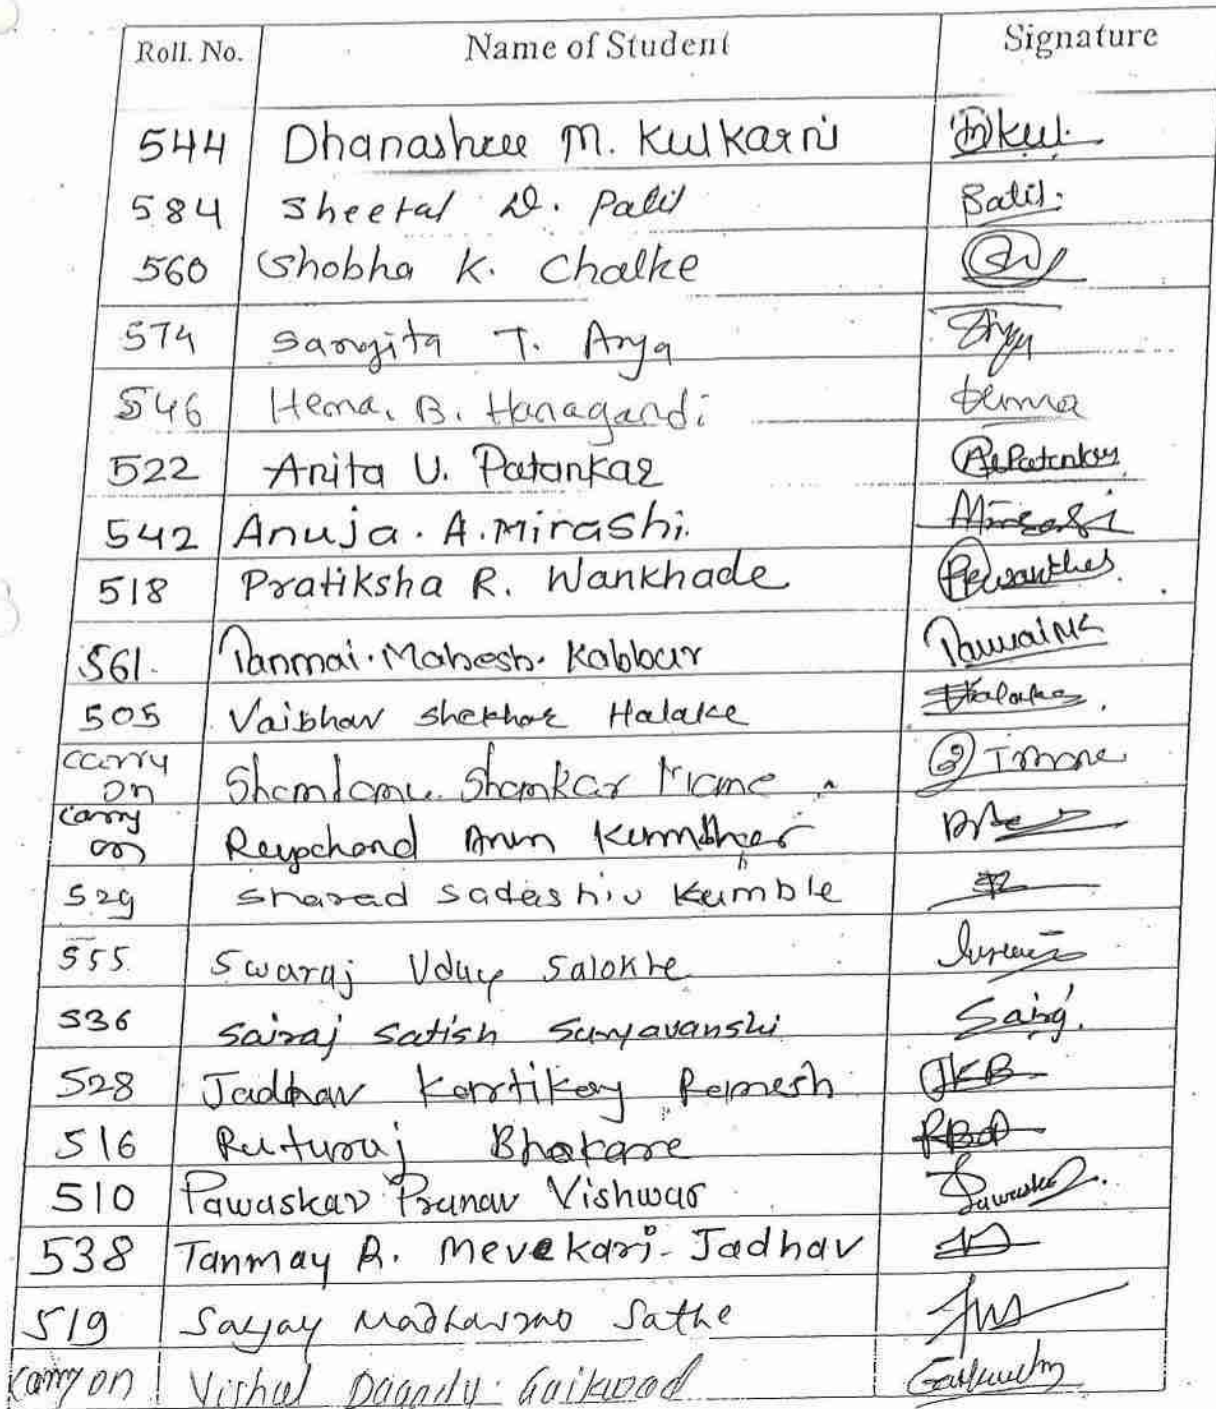 Roll. No. Name of Student Signature
544 Dhanashree M. Kulkarni Dkul.
584 Sheetal D. Patil Patil.
560 Shobha K. Chalke
574 Sangita T. Arya
546 Hema. B. Hanagandi Hema
522 Anita U. Patankar Patankar
542 Anuja. A. Mirashi. Mirashi
518 Pratiksha R. Wankhade
561. Tanmai. Mahesh. Kabbur
505 Vaibhav Shekhar Halake Halake
carry on Shankar
carry on Arun
529 Sharad Sadashiv Kumble
555 Swaraj Uday Salokhe
536 Sairaj Satish Suryavanshi Sairaj
528 Jadhav Kartikey Ramesh JKB
516 Ruturaj Bhakare
510 Pawaskar Pranav Vishwas Pawaskar
538 Tanmay R. Mevekari-Jadhav
519 Madhavrao Sathe
carry on Vishal Gaikwad